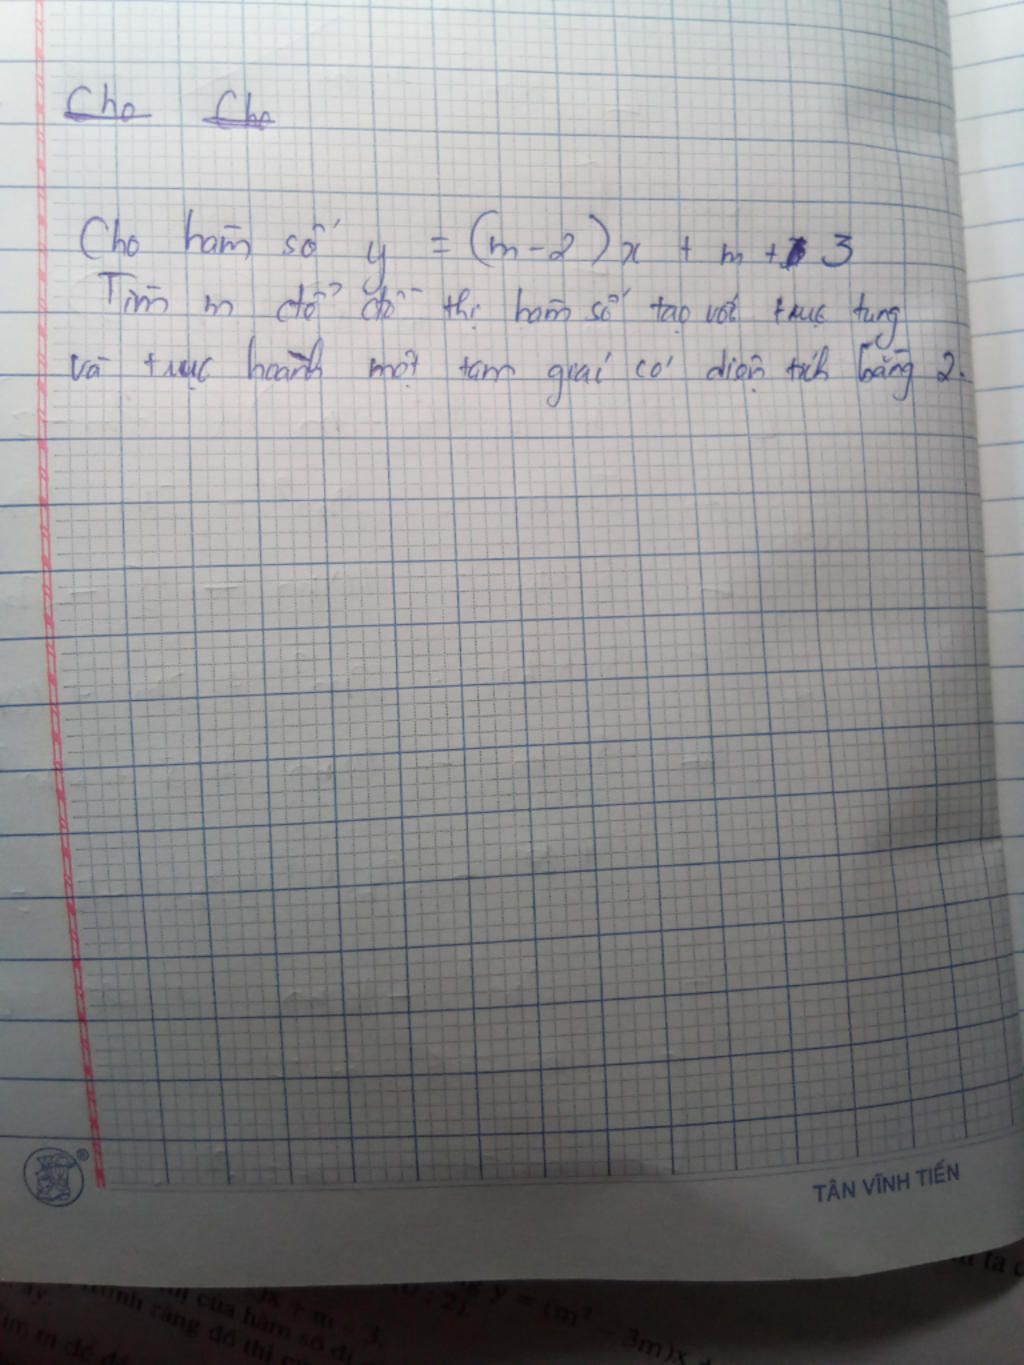 Cho Cho
Cho hàm số y = (m-2)x + m + 3
Tìm m để đồ thị hàm số tạo với trục tung
và trục hoành một tam giác có diện tích bằng 2.
®
TÂN VĨNH TIẾN
)x + m - 3.
0 ; 2).
y = (m² - 3m)x
minh rằng đồ thị của hàm số đi
Tìm m để